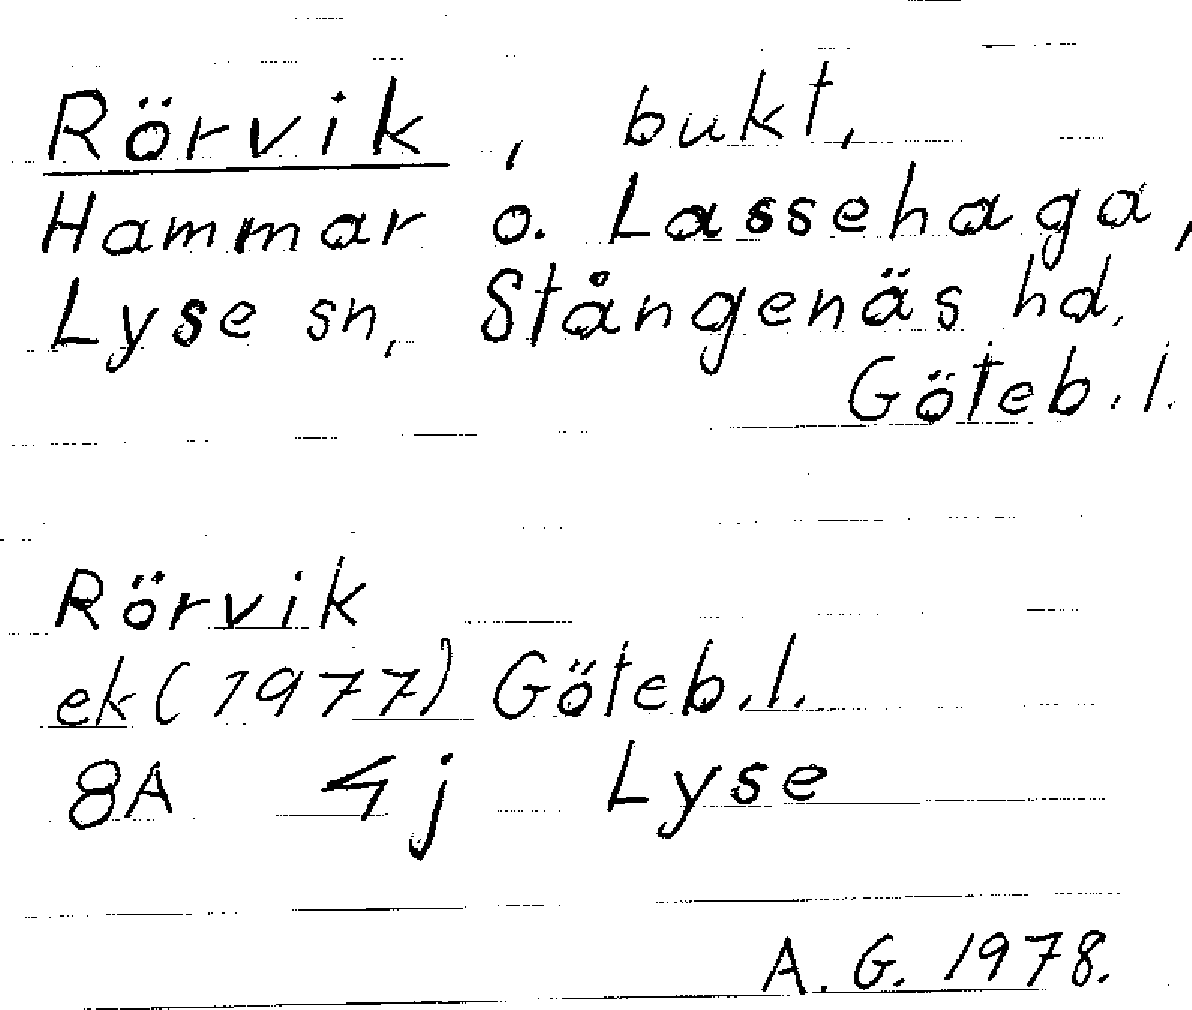 Rörvik, bukt,
Hammar o. Lassehaga,
Lyse sn, Stångenäs hd.
Göteb. l.
Rörvik
ek (1977) Göteb. l.
8A 4j Lyse
A. G. 1978.